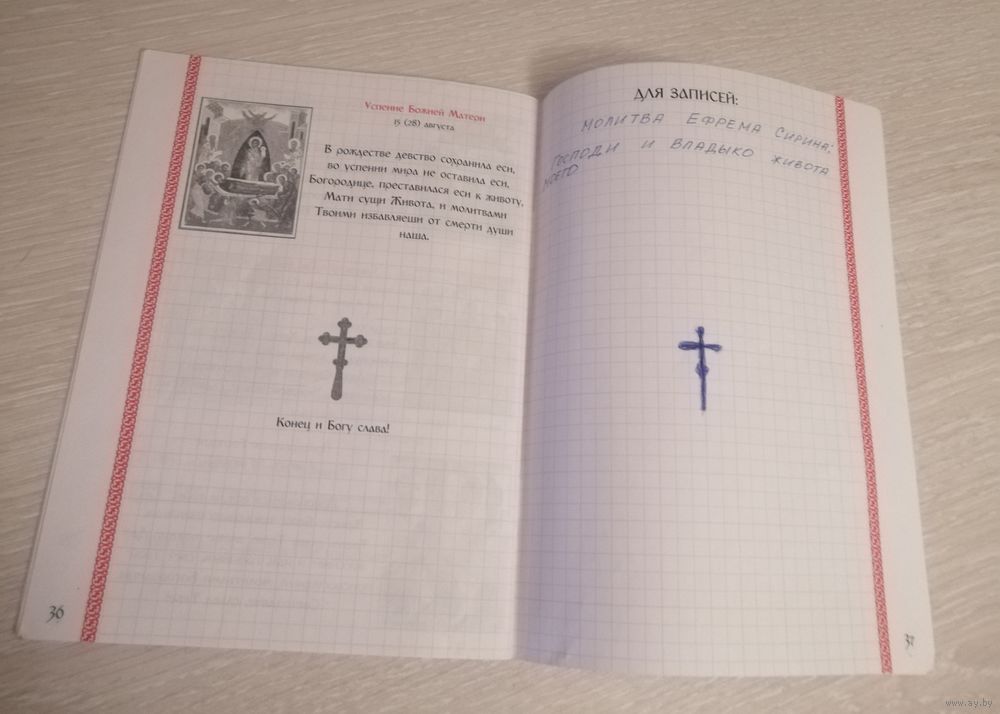 Успение Божией Матери
15 (28) августа
В рождестве девство сохранила еси,
во успении мира не оставила еси,
Богородице, преставилася еси к животу,
Мати сущи Живота, и молитвами
Твоими избавляеши от смерти души
наша.
Конец и Богу слава!
36
ДЛЯ ЗАПИСЕЙ:
МОЛИТВА ЕФРЕМА СИРИНА:
ГОСПОДИ И ВЛАДЫКО ЖИВОТА
МОЕГО
37
www.ay.by